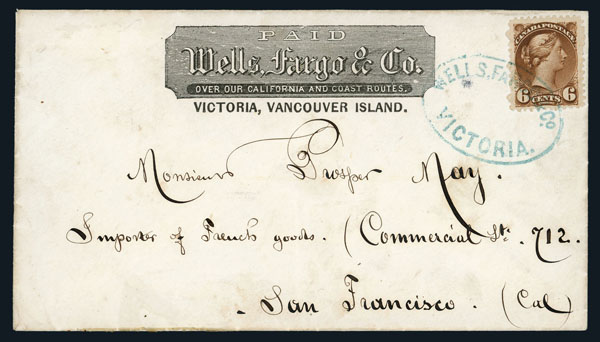 PAID
Wells, Fargo & Co.
OVER OUR CALIFORNIA AND COAST ROUTES.
VICTORIA, VANCOUVER ISLAND.
CANADA POSTAGE
6 CENTS 6
WELLS, FARGO & Co
VICTORIA.
Monsieur Prosper May.
Importer of French goods. (Commercial St. 712.
San Francisco. (Cal)